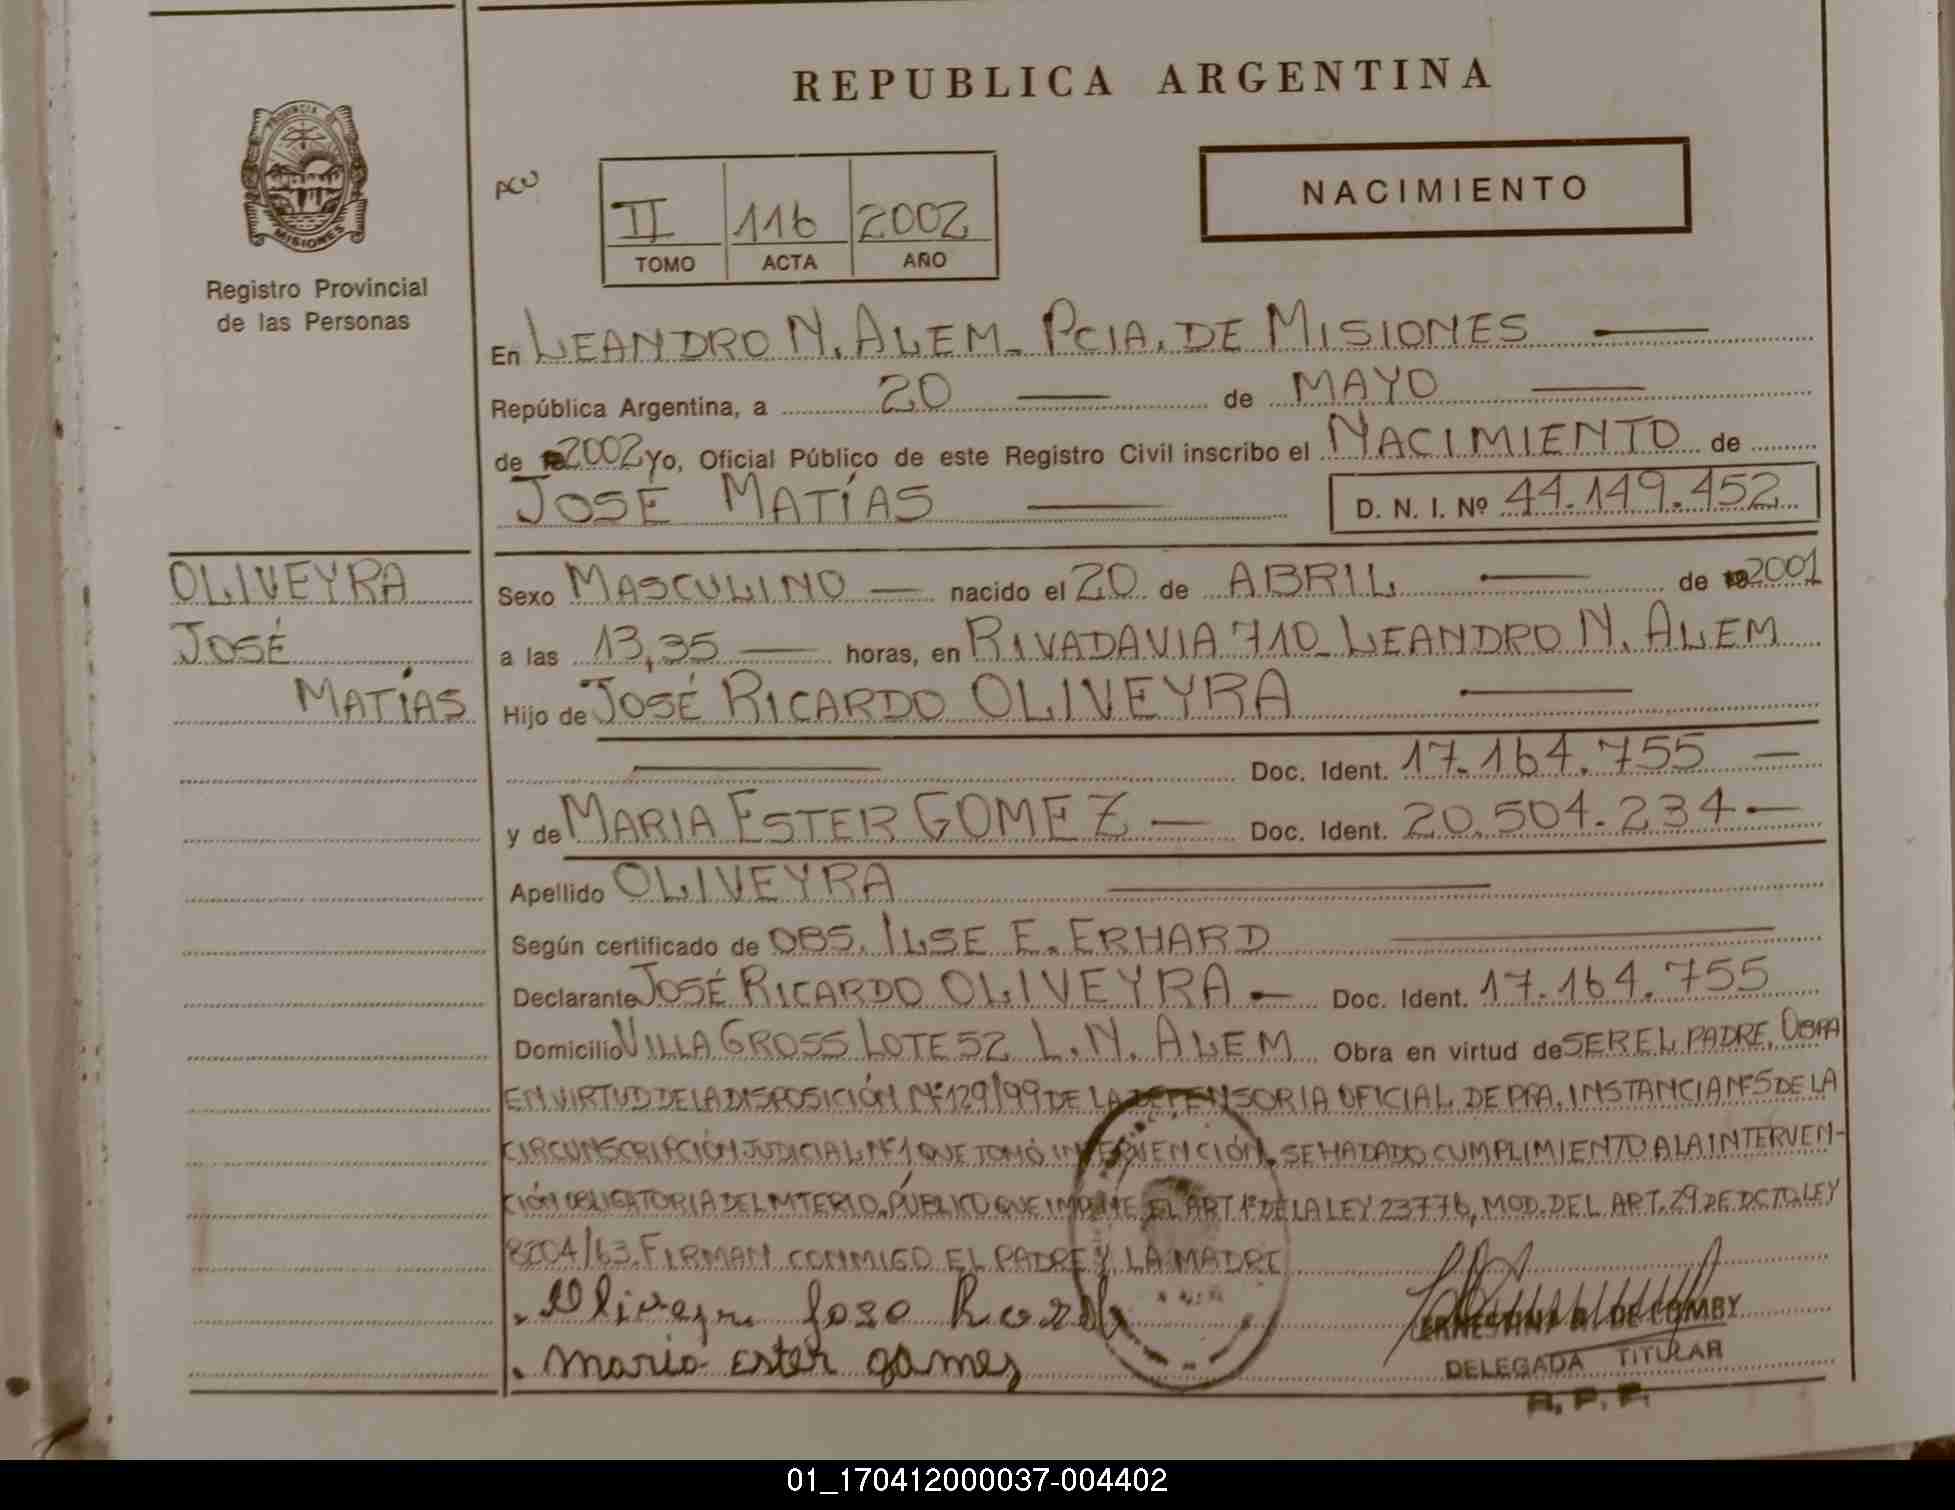 REPUBLICA ARGENTINA
PROVINCIA DE
MISIONES
Registro Provincial
de las Personas
ACU
II 116 2002
TOMO ACTA AÑO
NACIMIENTO
En LEANDRO N. ALEM_ PCIA. DE MISIONES
República Argentina, a 20 de MAYO
de 2002 yo, Oficial Público de este Registro Civil inscribo el NACIMIENTO de
JOSÉ MATÍAS D. N. I. Nº 44.149.452
OLIVEYRA
JOSÉ
MATÍAS
Sexo MASCULINO nacido el 20 de ABRIL de 2001
a las 13,35 horas, en RIVADAVIA 710_ LEANDRO N. ALEM
Hijo de JOSÉ RICARDO OLIVEYRA
Doc. Ident. 17.164.755
y de MARIA ESTER GOMEZ Doc. Ident. 20.504.234
Apellido OLIVEYRA
Según certificado de OBS. ILSE E. ERHARD
Declarante JOSÉ RICARDO OLIVEYRA Doc. Ident. 17.164.755
Domicilio VILLA GROSS LOTE 52 L. N. ALEM Obra en virtud de SER EL PADRE. OBRA
EN VIRTUD DE LA DISPOSICIÓN Nº 129/99 DE LA DEFENSORIA OFICIAL DE PRA. INSTANCIA Nº 5 DE LA
CIRCUNSCRIPCIÓN JUDICIAL Nº 1 QUE TOMÓ INTERVENCIÓN. SE HA DADO CUMPLIMIENTO A LA INTERVEN-
CIÓN OBLIGATORIA DEL MTERIO. PÚBLICO QUE IMPONE EL ART. 1º DE LA LEY 23776, MOD. DEL ART. 29 DE DCTO. LEY
8204/63. FIRMAN CONMIGO EL PADRE Y LA MADRE
Oliveyra Jose
maria ester gomes
ERNESTINA DE COMBY
DELEGADA TITULAR
R. P. P.
01_170412000037-004402